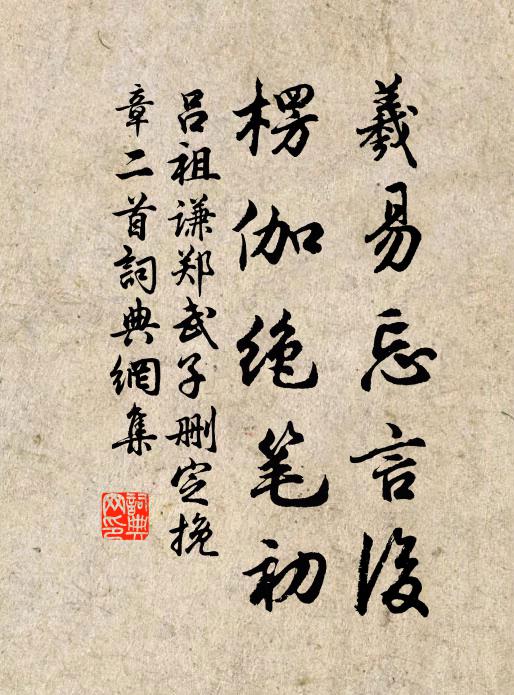 羲易忘言後
楞伽绝笔初
吕祖谦郑武子删定挽
章二首詞典網集
詞典
网印